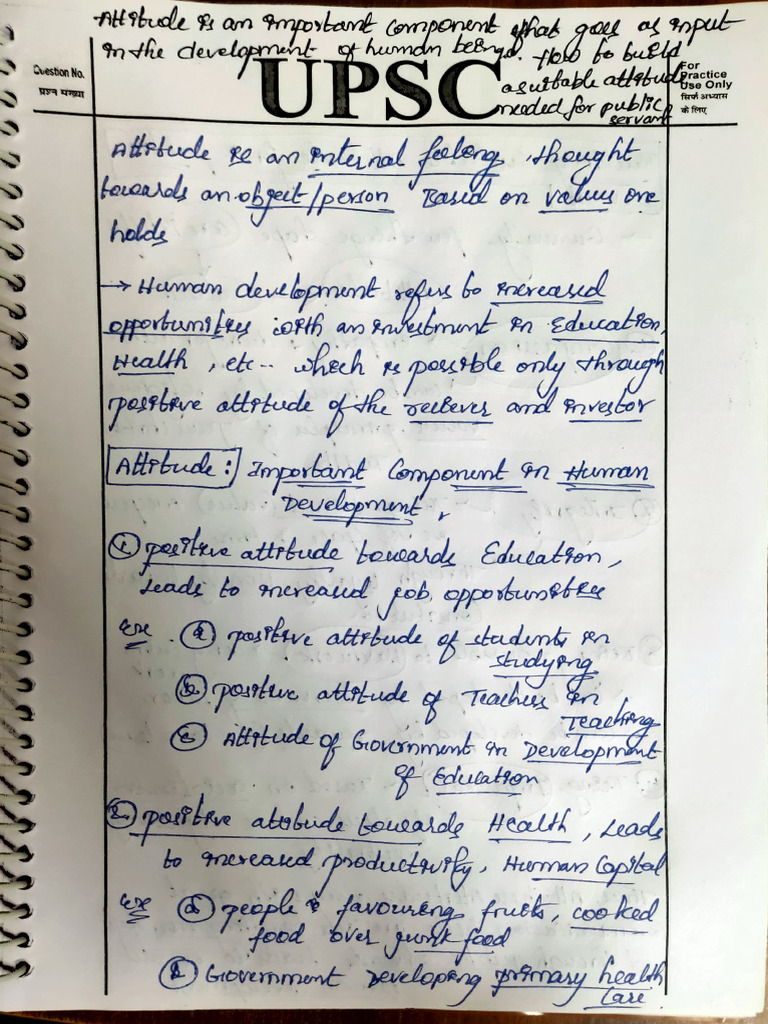 Attitude is an important component that goes as input
in the development of human beings. How to build
a suitable attitude
needed for public
servant
Question No.
प्रश्न संख्या
UPSC
For
Practice
Use Only
सिर्फ अभ्यास
के लिए
Attitude is an internal feeling, thought
towards an object/person Based on values one
holds
→ Human development refers to increased
opportunities with an investment in Education,
Health, etc-- which is possible only through
positive attitude of the reciever and investor
Attitude: Important Component in Human
Development,
① positive attitude towards Education,
leads to increased job opportunities
Ex. ⓐ positive attitude of students in
studying
ⓑ positive attitude of Teachers in
Teaching
ⓒ Attitude of Government in Development
of Education
② positive attitude towards Health, leads
to increased productivity, Human Capital
Ex ⓐ people favouring fruits, cooked
food over junk food
ⓑ Government developing primary health
Care.